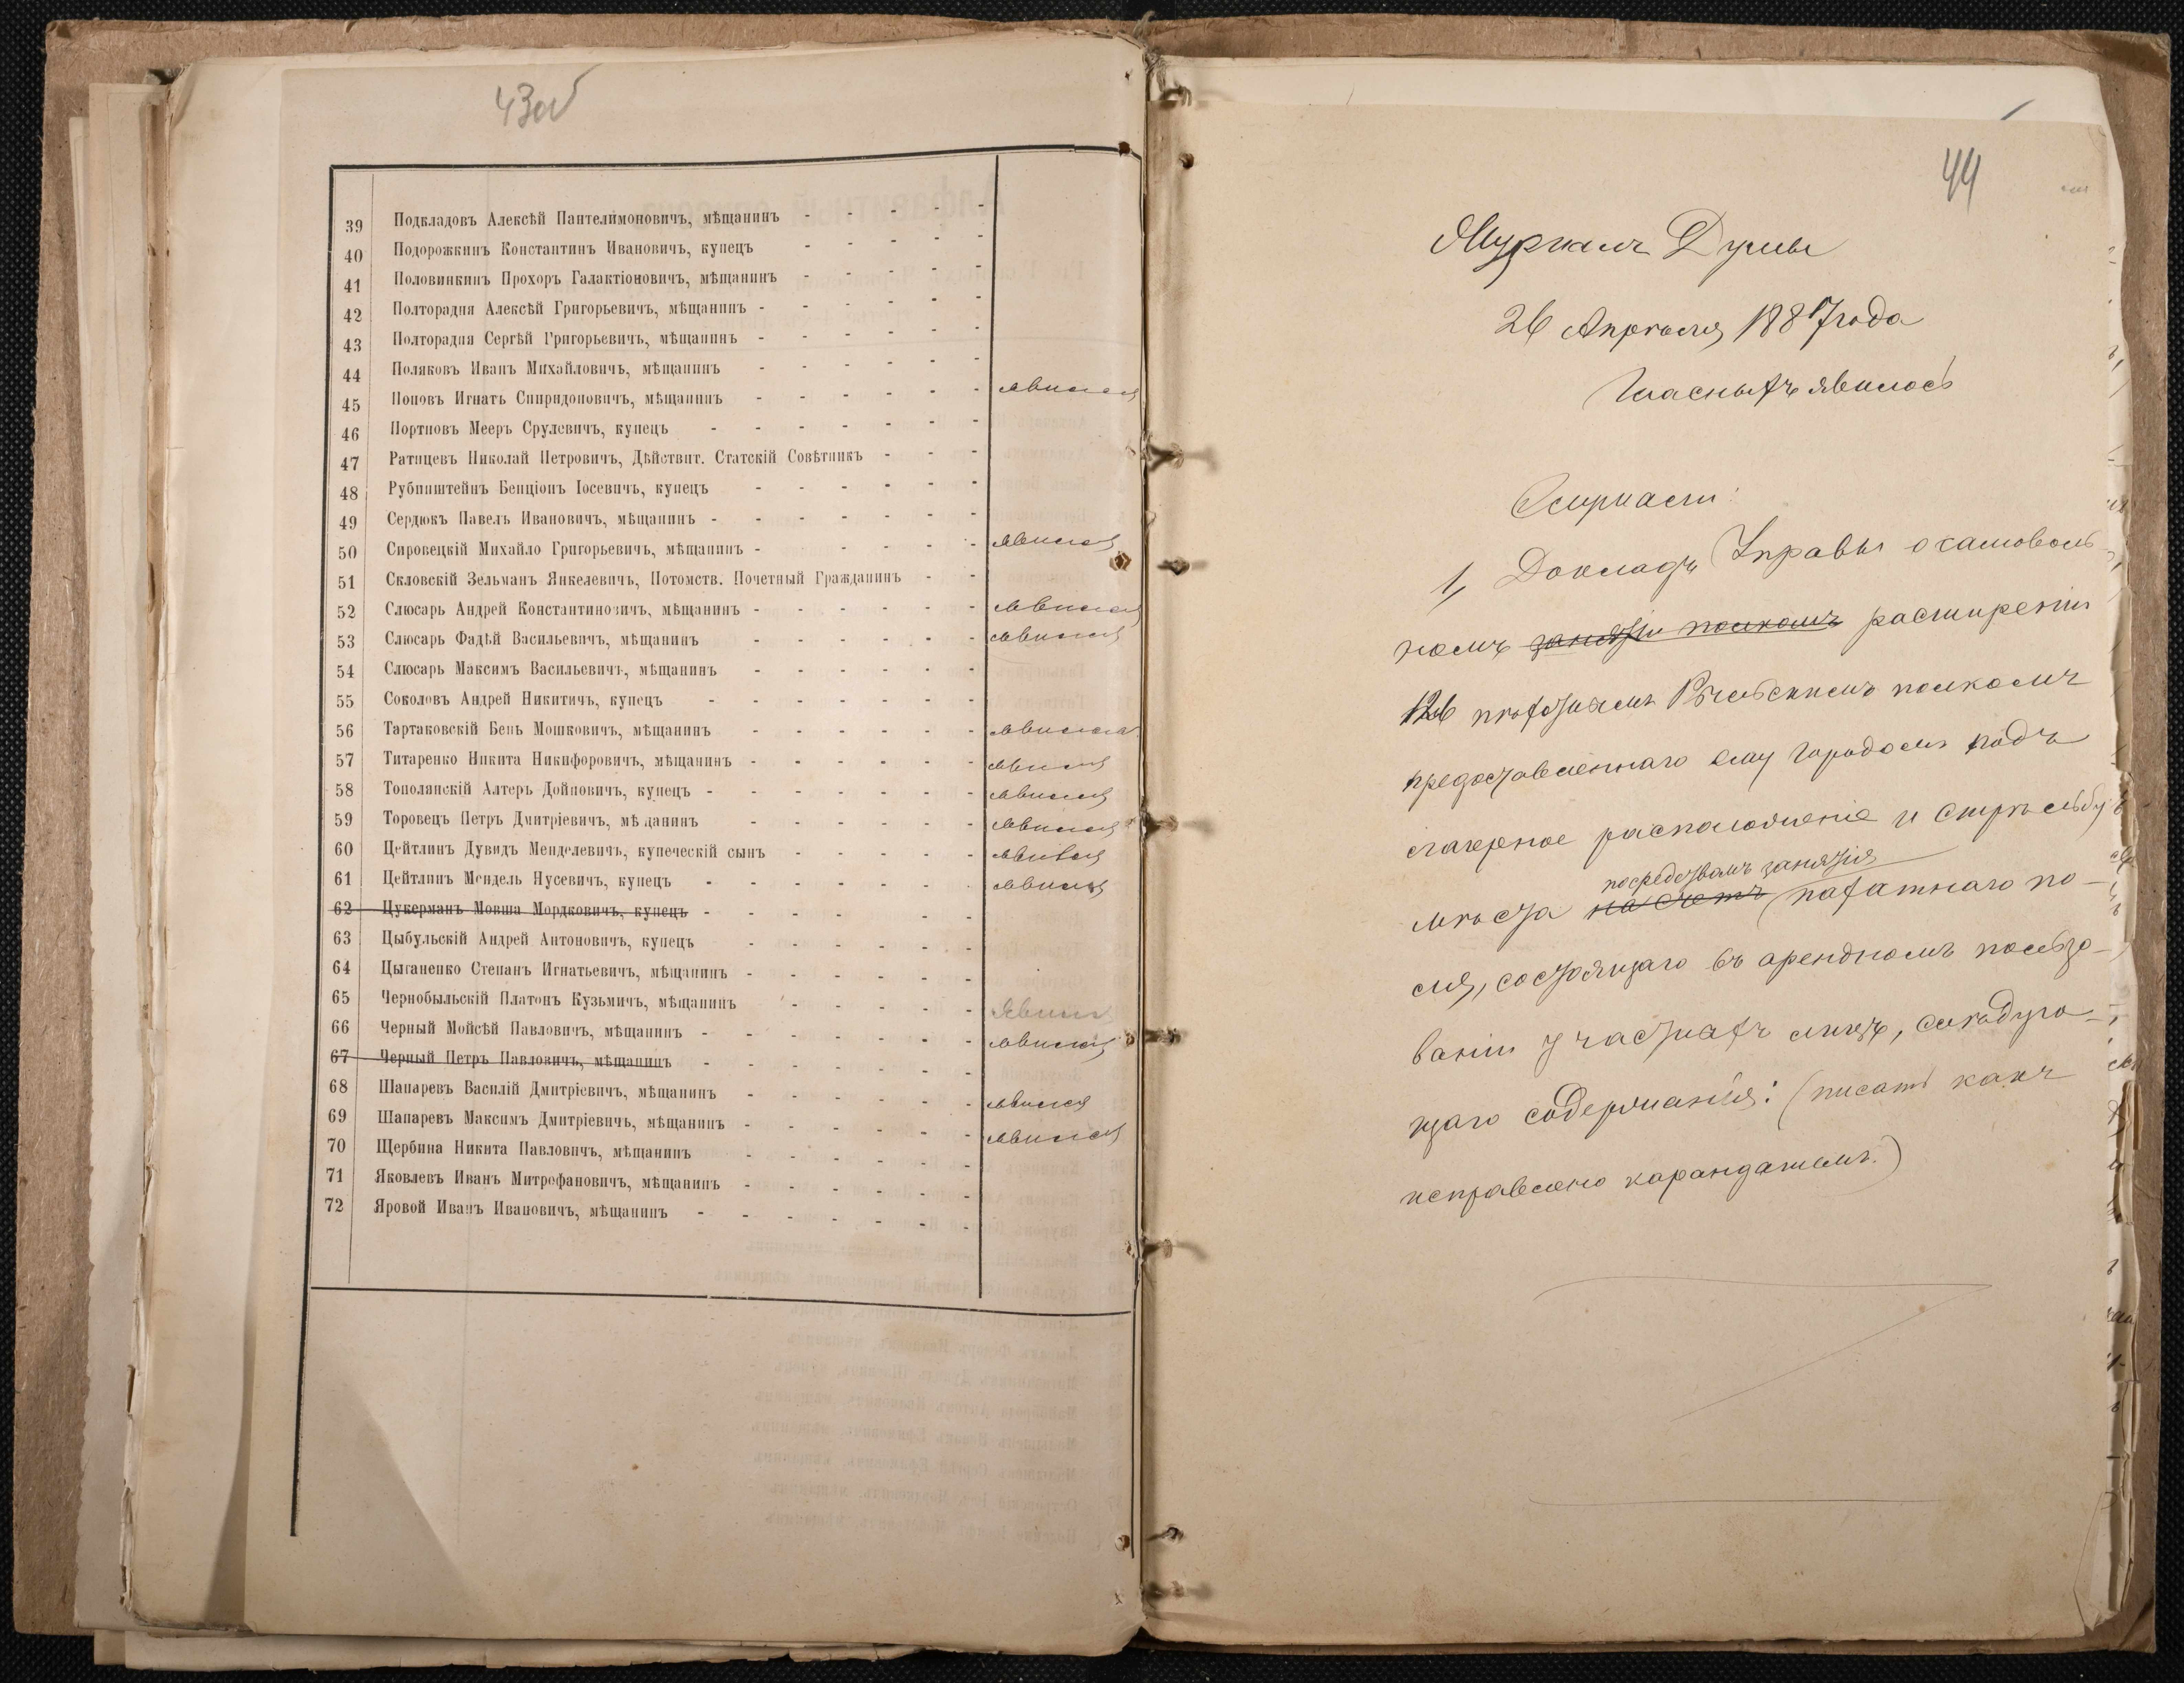 43об
39 Подкладовъ Алексѣй Пантелимоновичъ, мѣщанинъ - - - - -
40 Подорожкинъ Константинъ Ивановичъ, купецъ - - - - -
41 Половинкинъ Прохоръ Галактіоновичъ, мѣщанинъ - - - - -
42 Полторадня Алексѣй Григорьевичъ, мѣщанинъ - - - - - -
43 Полторадня Сергѣй Григорьевичъ, мѣщанинъ - - - - - -
44 Поляковъ Иванъ Михайловичъ, мѣщанинъ - - - - - -
45 Поповъ Игнатъ Спиридоновичъ, мѣщанинъ - - - - - - явился
46 Портновъ Мееръ Срулевичъ, купецъ - - - - - - -
47 Ратицевъ Николай Петровичъ, Дѣйствит. Статскій Совѣтникъ - - -
48 Рубинштейнъ Бенціонъ Іосевичъ, купецъ - - - - - -
49 Сердюкъ Павелъ Ивановичъ, мѣщанинъ - - - - - - -
50 Сировецкій Михайло Григорьевичъ, мѣщанинъ - - - - - явился
51 Скловскій Зельманъ Янкелевичъ, Потомств. Почетный Гражданинъ - -
52 Слюсарь Андрей Константиновичъ, мѣщанинъ - - - - - - явился
53 Слюсарь Фадѣй Васильевичъ, мѣщанинъ - - - - - - явился
54 Слюсарь Максимъ Васильевичъ, мѣщанинъ - - - - - -
55 Соколовъ Андрей Никитичъ, купецъ - - - - - - -
56 Тартаковскій Бень Мошковичъ, мѣщанинъ - - - - - - явился
57 Титаренко Никита Никифоровичъ, мѣщанинъ - - - - - - явился
58 Тополянскій Алтеръ Дойновичъ, купецъ - - - - - - - явился
59 Торовецъ Петръ Дмитріевичъ, мѣщанинъ - - - - - - явился
60 Цейтлинъ Дувидъ Менделевичъ, купеческій сынъ - - - - - явился
61 Цейтлинъ Мендель Нусевичъ, купецъ - - - - - - - явился
62 Цукерманъ Мовша Мордковичъ, купецъ - - - - - -
63 Цыбульскій Андрей Антоновичъ, купецъ - - - - - -
64 Цыганенко Степанъ Игнатьевичъ, мѣщанинъ - - - - - -
65 Чернобыльскій Платонъ Кузьмичъ, мѣщанинъ - - - - - Явился
66 Черный Мойсѣй Павловичъ, мѣщанинъ - - - - - - - явился
67 Черный Петръ Павловичъ, мѣщанинъ - - - - - - -
68 Шапаревъ Василій Дмитріевичъ, мѣщанинъ - - - - - - явился
69 Шапаревъ Максимъ Дмитріевичъ, мѣщанинъ - - - - - - явился
70 Щербина Никита Павловичъ, мѣщанинъ - - - - - -
71 Яковлевъ Иванъ Митрофановичъ, мѣщанинъ - - - - - -
72 Яровой Иванъ Ивановичъ, мѣщанинъ - - - - - - -
44
Журналъ Думы
26 Апрѣля 1887 года
Гласныхъ явилось
Слушали:
1, Докладъ Управы о самоволь-
номъ занятіи полкомъ расширеніи
126 пѣхотнымъ Рыльскимъ полкомъ
предоставленнаго ему городомъ подъ
лагерное расположеніе и стрѣльбу
посредствомъ занятія
мѣста на счетъ пахатнаго по-
ля, состоящаго въ арендномъ пользо-
ваніи у частныхъ лицъ, слѣдую-
щаго содержанія: (писать какъ
исправлено карандашемъ.)